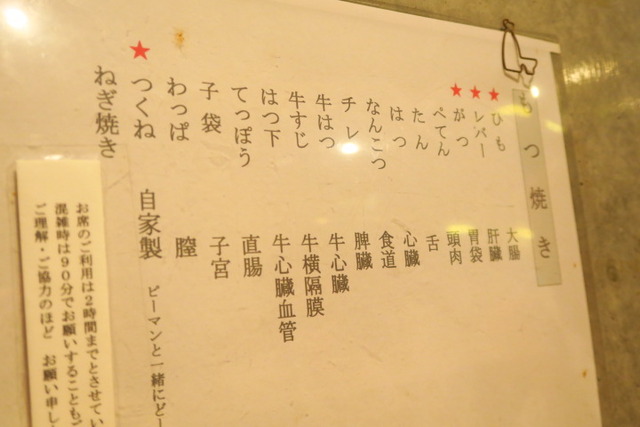 もつ焼き
ひも 大腸
レバー 肝臓
がつ 胃袋
ぺてん 頭肉
たん 舌
はつ 心臓
なんこつ 食道
チレ 脾臓
牛はつ 牛心臓
牛すじ 牛横隔膜
はつ下 牛心臓血管
てっぽう 直腸
子袋 子宮
わっぱ 膣
★つくね 自家製 ピーマンと一緒にどー
ねぎ焼き
お席のご利用は2時間までとさせてい
混雑時は90分でお願いすることもご
ご理解・ご協力のほど お願い申し